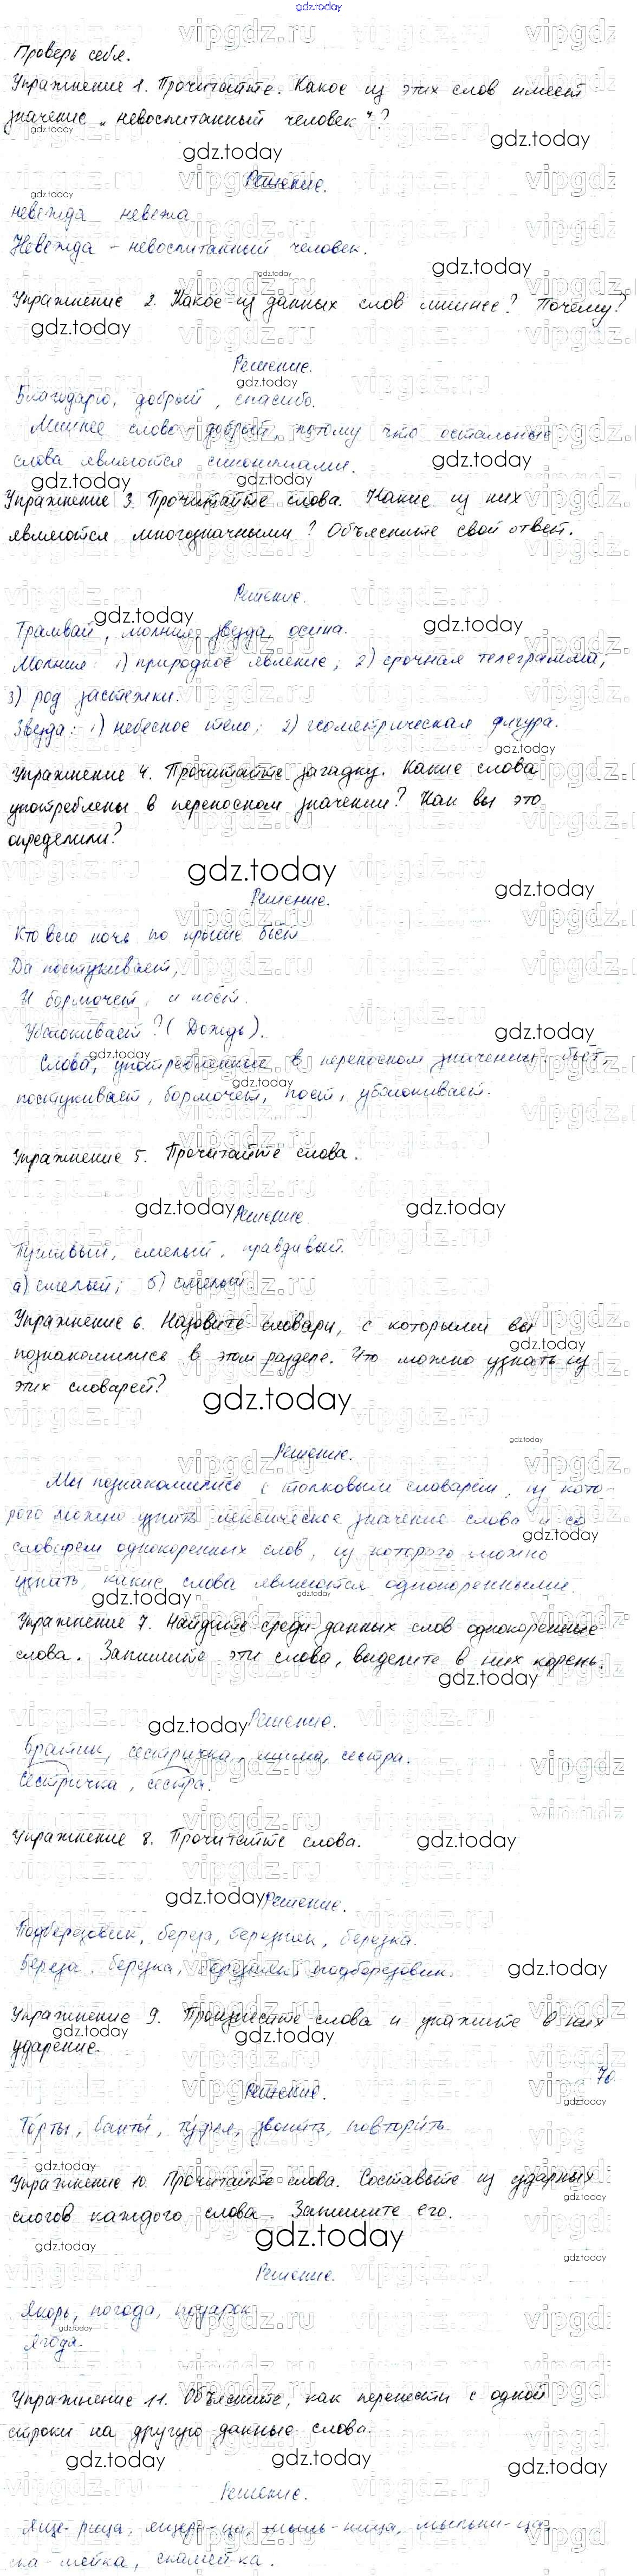 gdz.today
Проверь себя.
Упражнение 1. Прочитайте. Какое из этих слов имеет
значение „невоспитанный человек"?
Решение.
невежда невежа
Невежда – невоспитанный человек.
Упражнение 2. Какое из данных слов лишнее? Почему?
Решение.
Благодарю, добрый, спасибо.
Лишнее слово – добрый, потому что остальные
слова являются синонимами.
Упражнение 3. Прочитайте слова. Какие из них
являются многозначными? Объясните свой ответ.
Решение.
Трамвай, молния, звезда, осина.
Молния: 1) природное явление; 2) срочная телеграмма;
3) род застежки.
Звезда: 1) небесное тело; 2) геометрическая фигура.
Упражнение 4. Прочитайте загадку. Какие слова
употреблены в переносном значении? Как вы это
определили?
Решение.
Кто всю ночь по крыше бьёт
Да постукивает,
И бормочет, и поёт.
Убаюкивает? (Дождь).
Слова, употребленные в переносном значении: бьёт,
постукивает, бормочет, поёт, убаюкивает.
Упражнение 5. Прочитайте слова.
Решение.
Пугливый, смелый, правдивый.
а) смелый; б) смелый.
Упражнение 6. Назовите словари, с которыми вы
познакомились в этом разделе. Что можно узнать из
этих словарей?
Решение.
Мы познакомились с толковым словарём, из кото-
рого можно узнать лексическое значение слова и со
словарем однокоренных слов, из которого можно
узнать, какие слова являются однокоренными.
Упражнение 7. Найдите среди данных слов однокоренные
слова. Запишите эти слова, выделите в них корень.
Решение.
Братик, сестричка, сестра.
Сестричка, сестра.
Упражнение 8. Прочитайте слова.
Решение.
Подберезовик, береза, березняк, березка.
Береза, березка, березняк, подберезовик.
Упражнение 9. Произнесите слова и укажите в них
ударение.
Решение.
То́рты, ба́нты, ту́фля, звони́ть, повтори́ть.
Упражнение 10. Прочитайте слова. Составьте из ударных
слогов каждого слова. Запишите его.
Решение.
Якорь, погода, подарок
Ягода.
Упражнение 11. Объясните, как перенести с одной
строки на другую данные слова.
Решение.
Яще-рица, ящери-ца,
ска-мейка, скамей-ка.